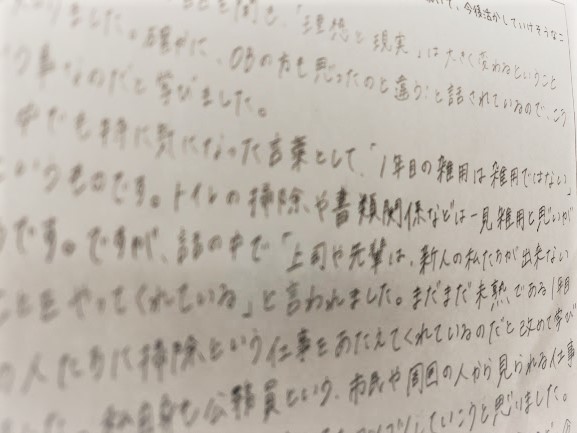 今後活かしていけそうなこ
りました。確かに、OBの方も思ったのと違う:と話されているので、こう
を聞き、「理想と現実」は大きく変わるということ
事なのだと学びました。
中でも特に気になった言葉として、「1年目の雑用は雑用ではない」
いうものです。トイレの掃除や書類関係などは一見雑用と思いが
です。ですが、話の中で「上司や先輩は、新人の私たちが出来ない
ことをやってくれている」と言われました。まだまだ未熟である1年目
の人たちに掃除という仕事をあたえてくれているのだと改めて学び
ました。私自身も公務員という、市民や周囲の人から見られる仕事
していこうと思いました。